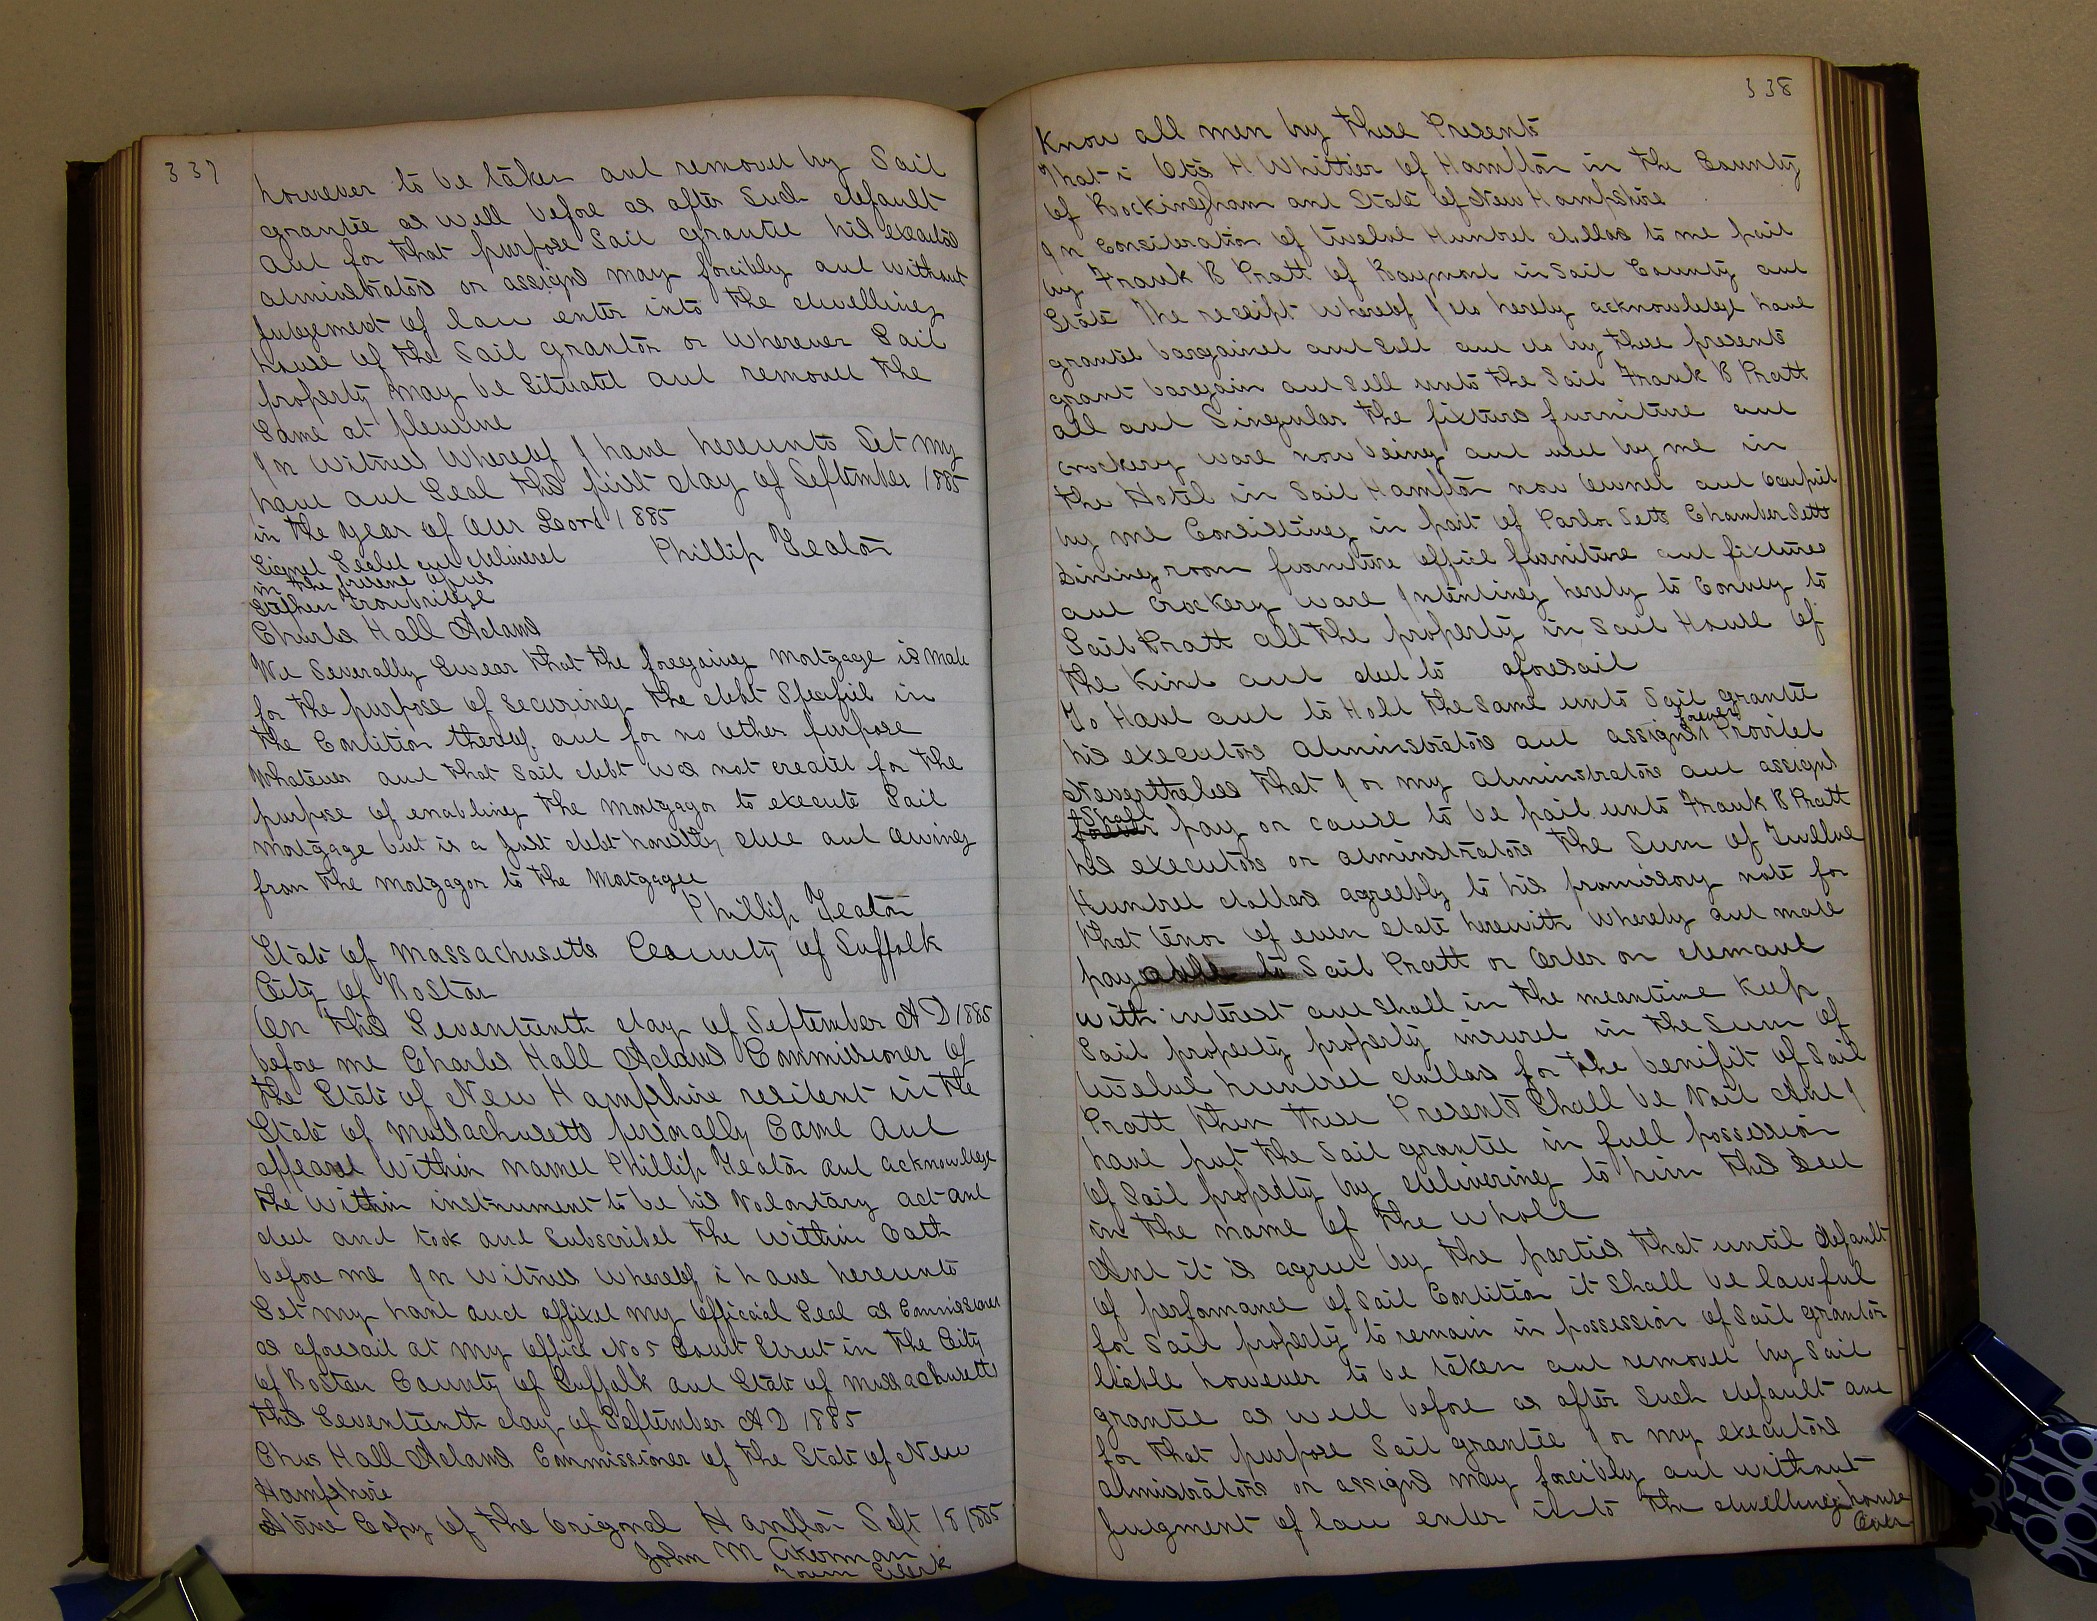 337
however to be taken and removed by Said
grantee as well before as after such default
and for that purpose Said grantee his executors
administrators or assigns may forcibly and without
Judgement of law enter into the dwelling
house of the Said grantor or wherever Said
property may be Situated and removed the
Same at pleasure
In Witness Whereof I have hereunto Set my
hand and Seal this first day of September 1885
in the year of Our Lord 1885
Signed Sealed and delivered Phillip Yeaton
in the presene of us
Stephen Trowbridge
Charles Hall Adams
We Severally Swear that the foregoing Mortgage is made
for the purpose of Securing the debt Specified in
the Condition thereof and for no other purpose
Whatever and that Said debt was not created for the
purpose of enabling the Mortgagor to execute Said
Mortgage but is a Just debt honestly due and owing
from the Mortgagor to the Mortgagee
Phillip Yeaton
State of Massachusetts County of Suffolk
City of Boston
On this Seventeenth day of September A D 1885
before me Charles Hall Adams Commissioner of
the State of New Hampshire resident in the
State of Massachusetts personally Came and
appeared Within named Phillip Yeaton and acknowledge
the within instrument to be his Voluntary act and
deed and took and Subscribed the Within Oath
before me In Witness Whereof i have hereunto
Set my hand and affixed my Official Seal as Commissioner
as aforesaid at my office No 5 Court Street in the City
of Boston County of Suffolk and State of Massachusetts
this Seventeenth day of September A D 1885
Chas Hall Adams Commissioner of the State of New
Hampshire
A true Copy of the Original Hampton Sept 18 1885
John M Akerman
Town Clerk
338
Know all men by these Presents
That i Otis H Whittier of Hampton in the County
of Rockingham and State of New Hampshire
In Consideration of twelve Hundred dollars to me paid
by Frank B Pratt of Raymond in Said County and
State The receipt whereof I do hereby acknowledge have
granted bargained and Sold and do by these presents
grant bargain and Sell unto the Said Frank B Pratt
all and Singular the fixtures furniture and
crockery ware now being and used by me in
the Hotel in Said Hampton now Owned and Occupied
by me Consisting in part of Parlor Setts Chamber Setts
Dining room furniture office furniture and fixtures
and Crockery ware Intending hereby to Convey to
Said Pratt all the property in Said House of
the Kind and deed to aforesaid
To Have and to Hold the Same unto Said grantee
his executors administrators and assigns forever Provided
Nevertheless that I or my administrators and assigns
Shall pay or cause to be paid unto Frank B Pratt
his executors or administrators the Sum of Twelve
Hundred dollars agreebly to his promissory note for
that tenor of even date herewith Whereby and made
payable to Said Pratt or Order on demand
with interest and Shall in the meantime Keep
Said property property insured in the Sum of
twelve hundred dollars for the benifit of Said
Pratt then these Presents Shall be Void And I
have put the Said grantee in full possession
of Said property by delivering to him this deed
in the name of the whole
And it is agreed by the parties that until default
of perfomance of Said Condition it Shall be lawful
for Said property to remain in possession of Said grantor
liable however to be taken and removed by Said
grantee as well before as after Such default and
for that purpose Said grantee I or my executors
administrators or assigns may forcibly and without
Judgment of law enter into the dwelling house
Over